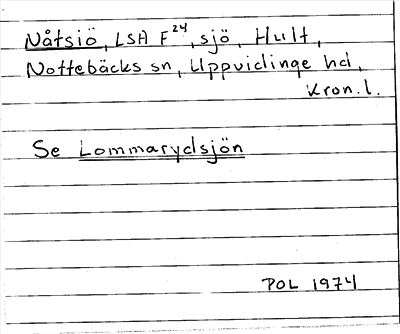 Nåtsiö, LSA F²⁴, sjö, Hult,
Nottebäcks sn, Uppvidinge hd,
Kron. l.
Se Lommarydsjön
POL 1974